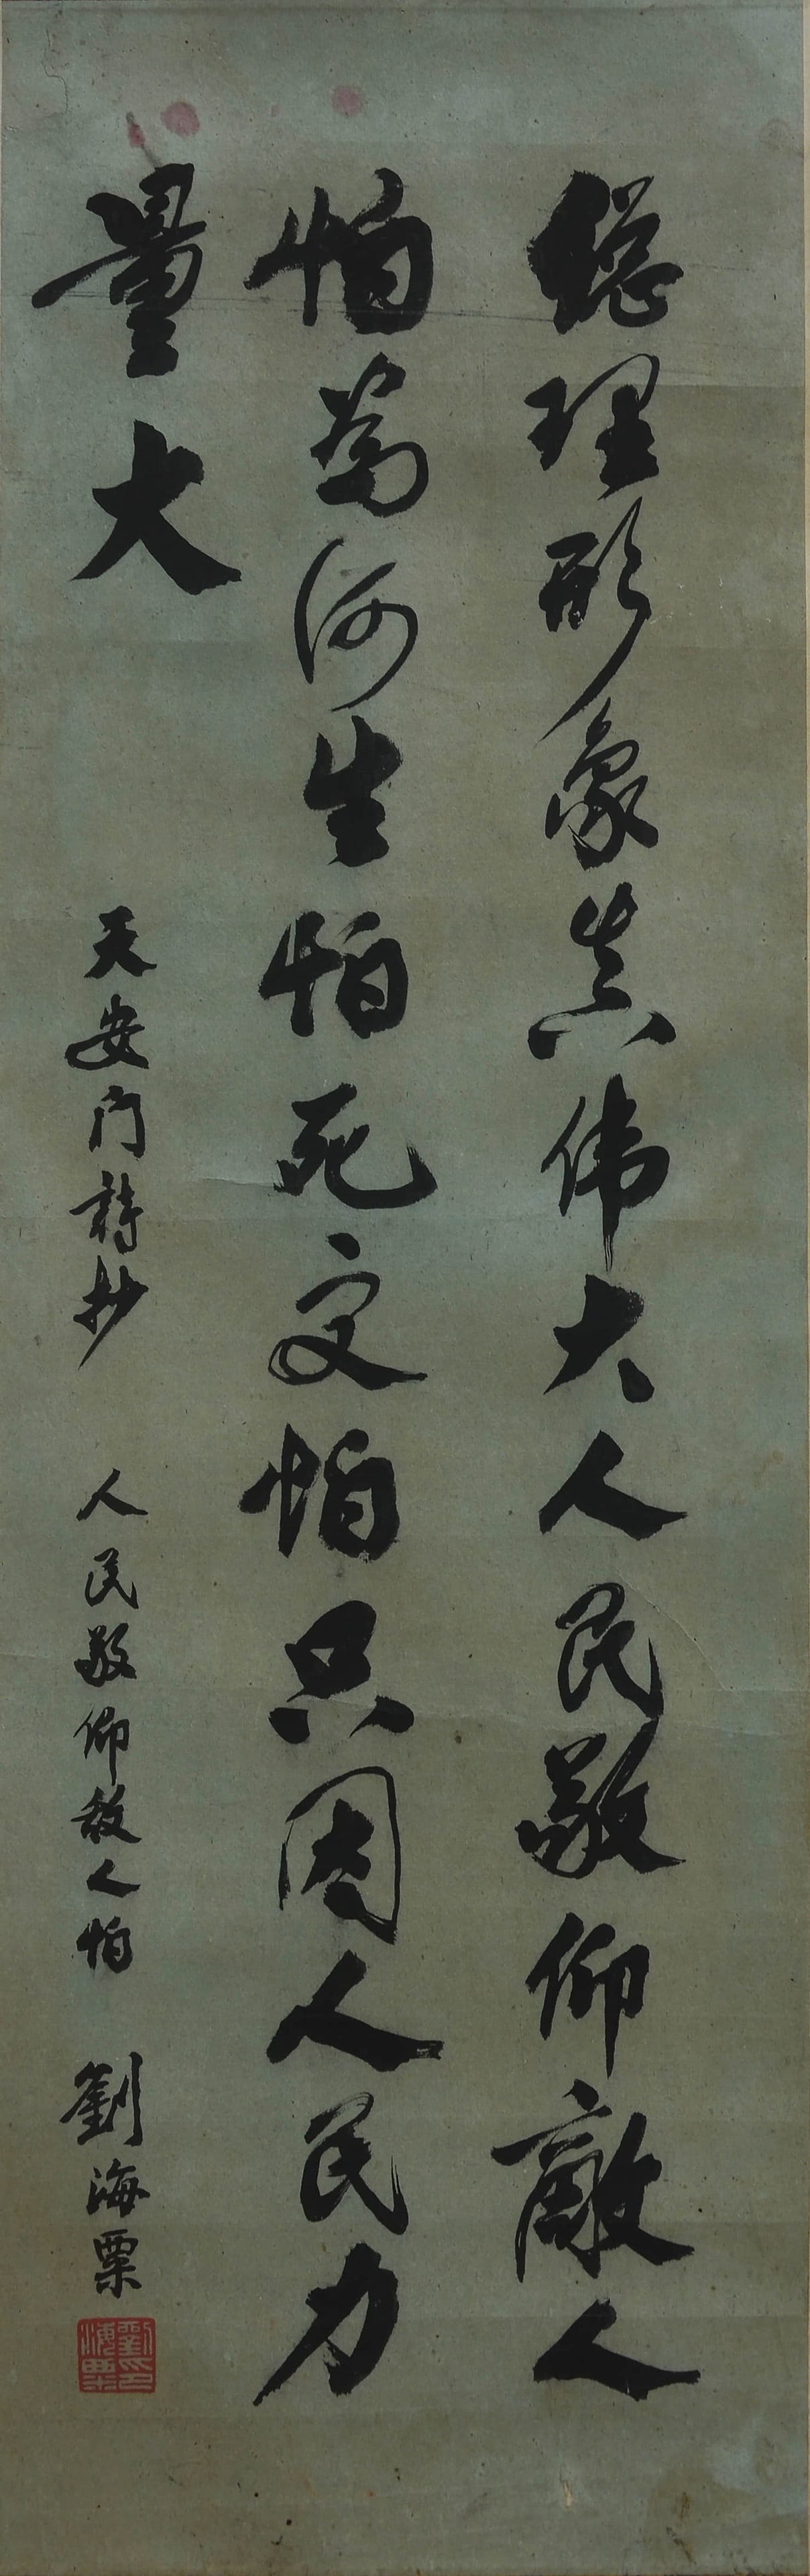 総理形象真伟大人民敬仰敵人
怕為何生怕死更怕只因人民力
量大
天安门詩抄 人民敬仰敌人怕 劉海粟
劉海粟印